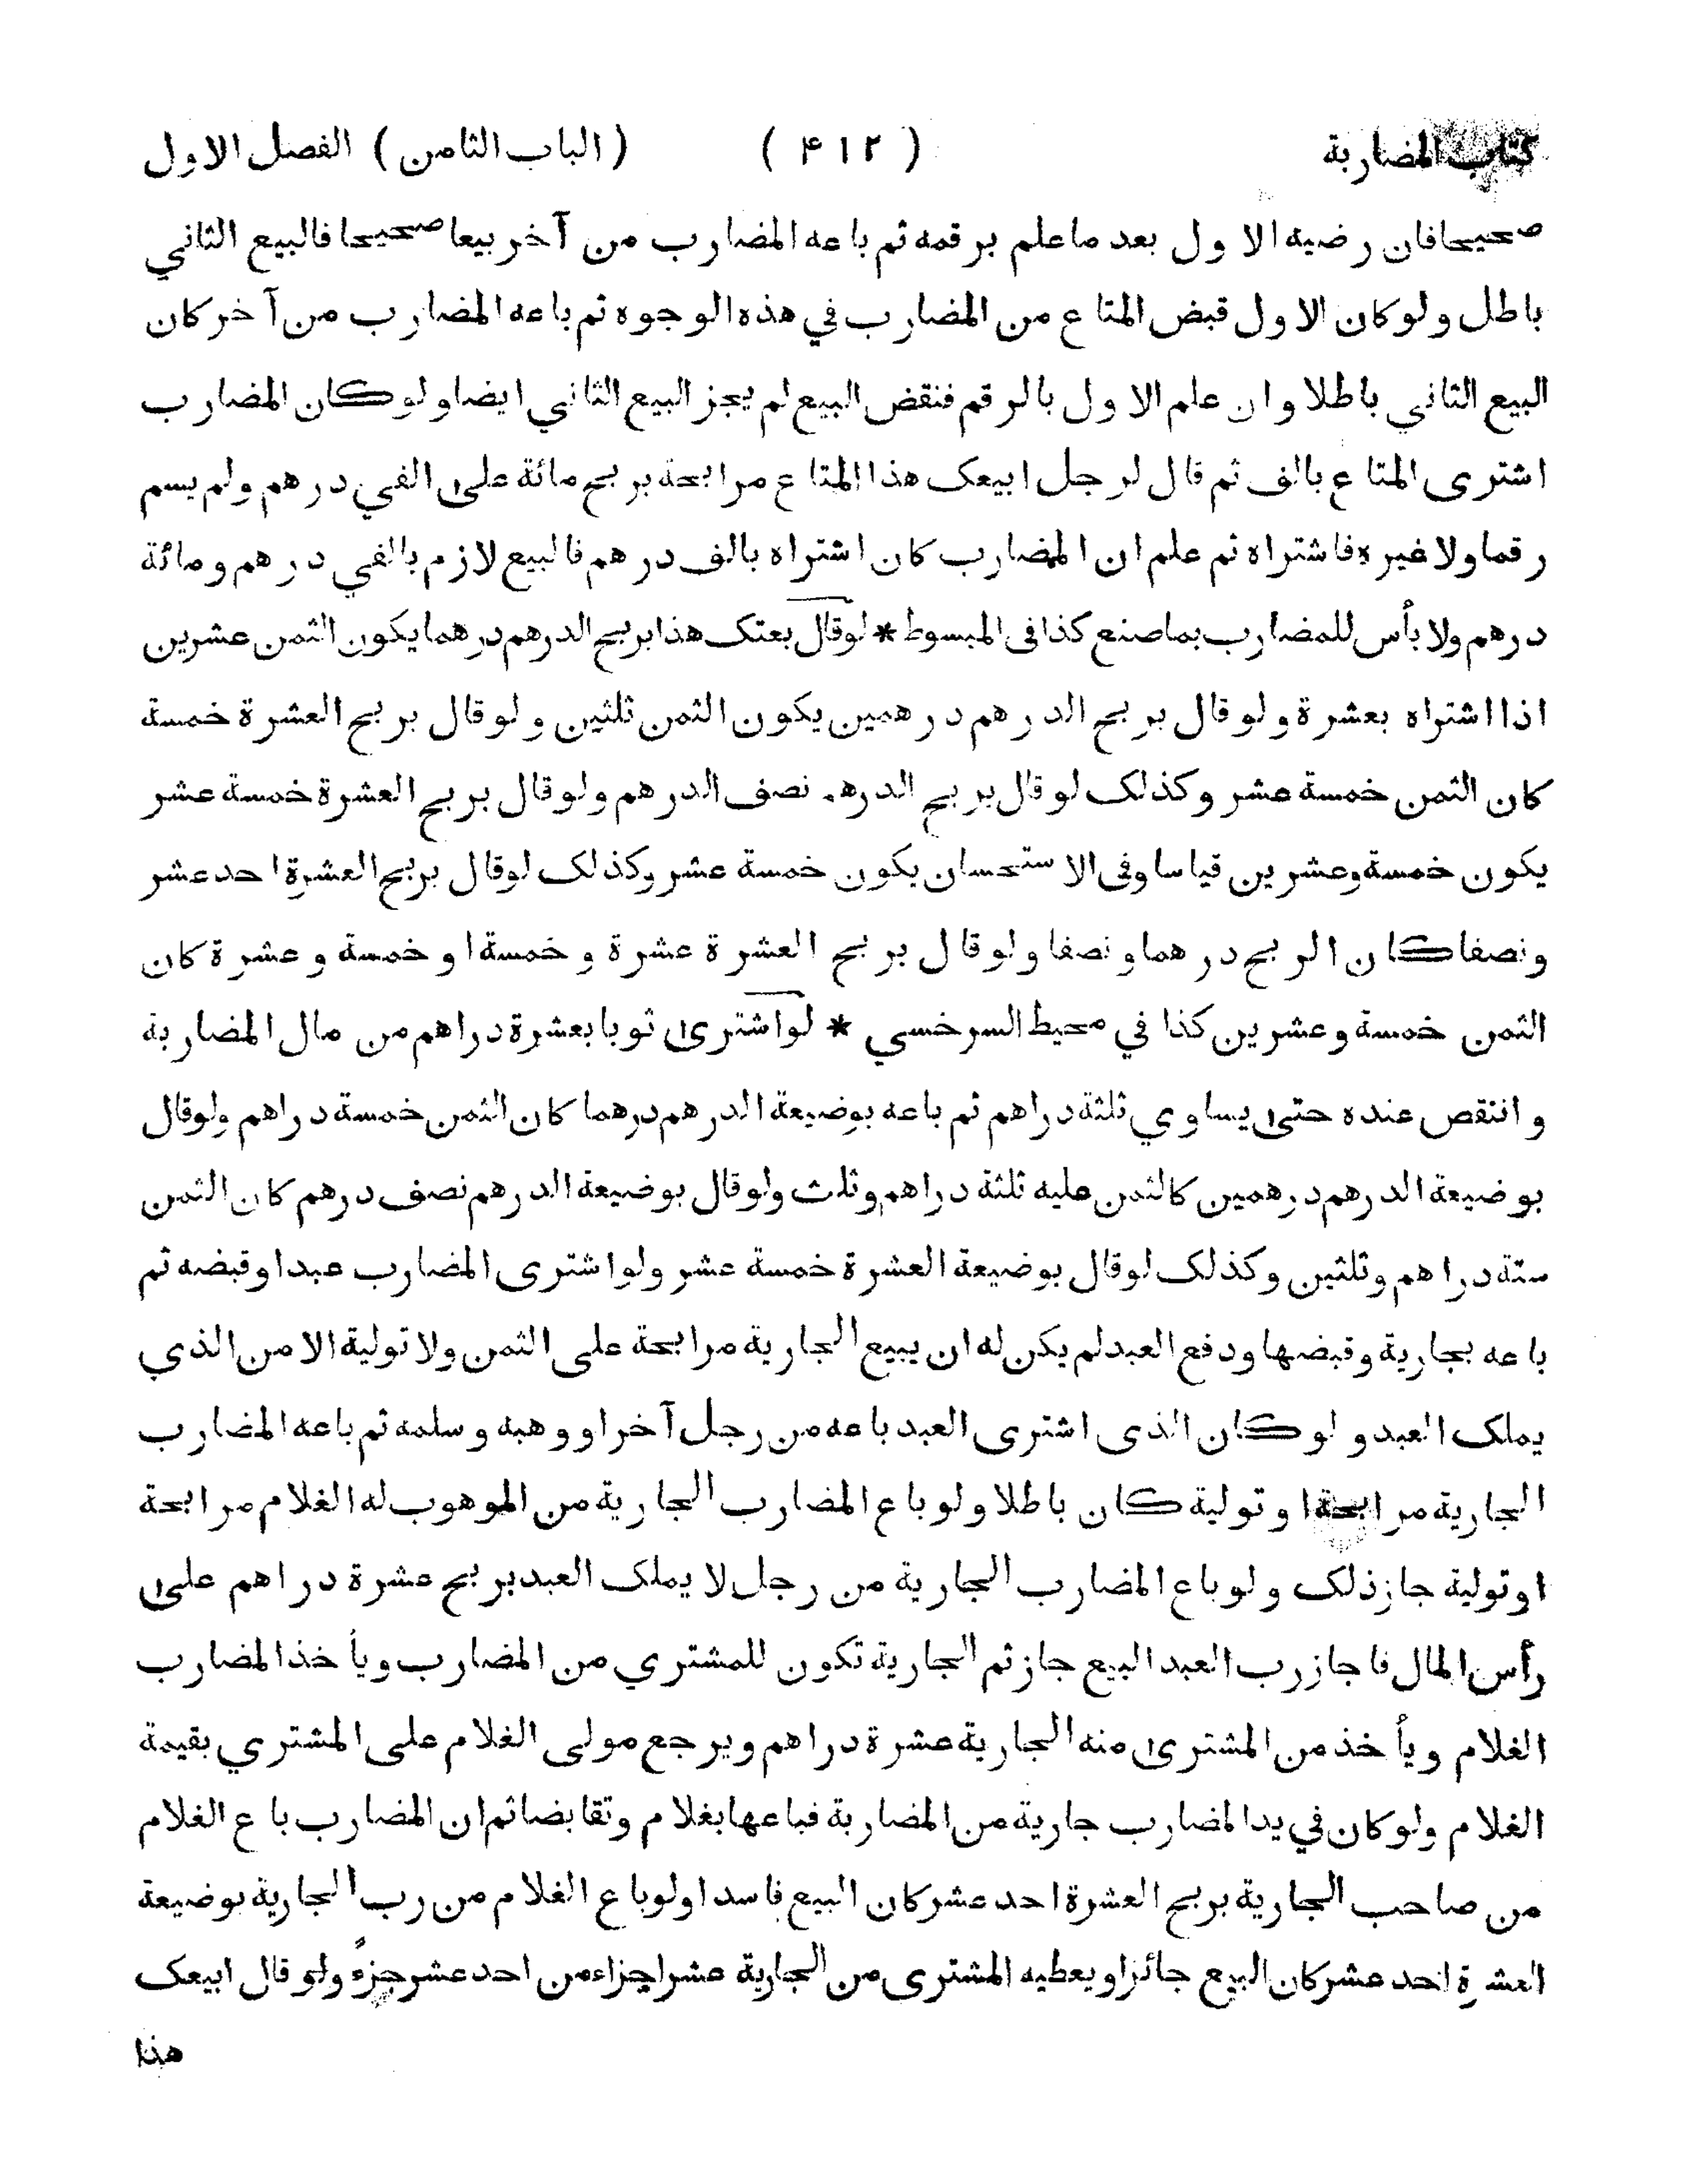 كتاب المضاربة ( ۴۱۲ ) (الباب الثامن) الفصل الاول
صحيحا فان رضيه الاول بعد ما علم برقمه ثم باعه المضارب من آخر بيعا صحيحا فالبيع الثاني
باطل ولو كان الاول قبض المتاع من المضارب في هذه الوجوه ثم باعه المضارب من آخر كان
البيع الثاني باطلا وان علم الاول بالرقم فنقض البيع لم يجز البيع الثاني ايضا ولو كان المضارب
اشترى المتاع بالف ثم قال لرجل ابيعك هذا المتاع مرابحة بربح مائة على الفي درهم ولم يسم
رقما ولا غيره فاشتراه ثم علم ان المضارب كان اشتراه بالف درهم فالبيع لازم بالفي درهم ومائة
درهم ولا بأس للمضارب بما صنع كذا فى المبسوط * لو قال بعتك هذا بربح الدرهم درهما يكون الثمن عشرين
اذا اشتراه بعشرة ولو قال بربح الدرهم درهمين يكون الثمن ثلثين ولو قال بربح العشرة خمسة
كان الثمن خمسة عشر وكذلك لو قال بربح الدرهم نصف الدرهم ولو قال بربح العشرة خمسة عشر
يكون خمسة وعشرين قياسا وفى الاستحسان يكون خمسة عشر وكذلك لو قال بربح العشرة احد عشر
ونصفا كان الربح درهما ونصفا ولو قال بربح العشرة عشرة وخمسة او خمسة وعشرة كان
الثمن خمسة وعشرين كذا في محيط السرخسي * لو اشترى ثوبا بعشرة دراهم من مال المضاربة
وانتقص عنده حتى يساوي ثلثة دراهم ثم باعه بوضيعة الدرهم درهما كان الثمن خمسة دراهم ولو قال
بوضيعة الدرهم درهمين كالثمن عليه ثلثة دراهم وثلث ولو قال بوضيعة الدرهم نصف درهم كان الثمن
ستة دراهم وثلثين وكذلك لو قال بوضيعة العشرة خمسة عشر ولو اشترى المضارب عبدا وقبضه ثم
باعه بجارية وقبضها ودفع العبد لم يكن له ان يبيع الجارية مرابحة على الثمن ولا تولية الا من الذي
يملك العبد ولو كان الذى اشترى العبد باعه من رجل آخر او وهبه وسلمه ثم باعه المضارب
الجارية مرابحة او تولية كان باطلا ولو باع المضارب الجارية من الموهوب له الغلام مرابحة
او تولية جاز ذلك ولو باع المضارب الجارية من رجل لا يملك العبد بربح عشرة دراهم على
رأس المال فاجاز رب العبد البيع جاز ثم الجارية تكون للمشتري من المضارب ويأخذ المضارب
الغلام ويأخذ من المشترى منه الجارية عشرة دراهم ويرجع مولى الغلام على المشتري بقيمة
الغلام ولو كان في يد المضارب جارية من المضاربة فباعها بغلام وتقابضا ثم ان المضارب باع الغلام
من صاحب الجارية بربح العشرة احد عشر كان البيع فاسدا ولو باع الغلام من رب الجارية بوضيعة
العشرة احد عشر كان البيع جائزا ويعطيه المشترى من الجارية عشر اجزاء من احد عشر جزءً ولو قال ابيعك
هذا